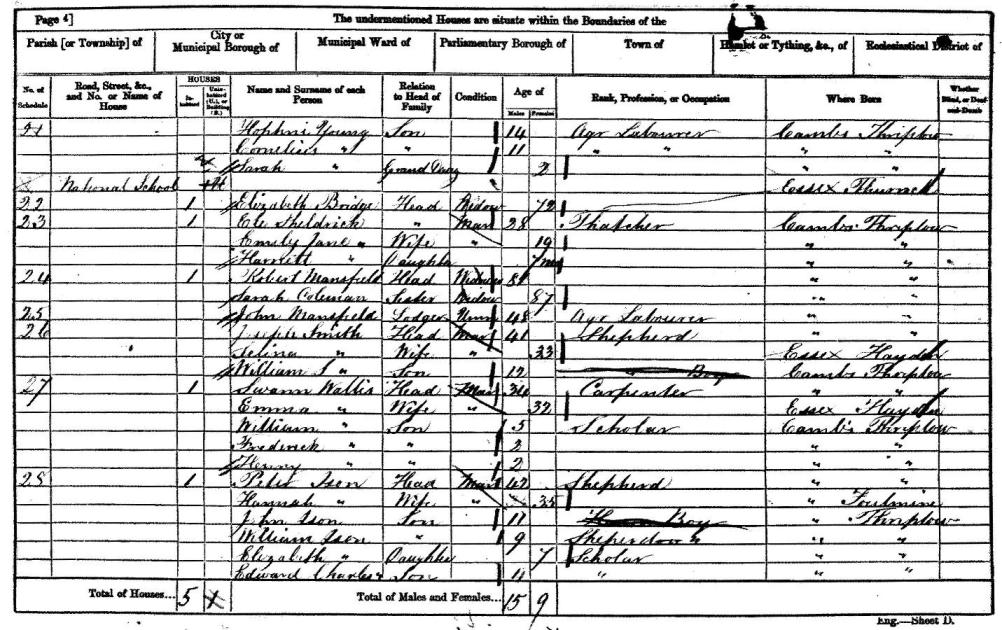 Page 4] The undermentioned Houses are situate within the Boundaries of the
Parish [or Township] of City or Municipal Borough of Municipal Ward of Parliamentary Borough of Town of Hamlet or Tything, &c., of Ecclesiastical District of
No. of Schedule Road, Street, &c., and No. or Name of House HOUSES Inhabited Uninhabited (U.), or Building (B.) Name and Surname of each Person Relation to Head of Family Condition Age of Males Females Rank, Profession, or Occupation Where Born Whether Blind, or Deaf-and-Dumb
21 Hophni Young Son 14 Agr Labourer Cambs Thriplow
Cornelius " " 11 " " " "
Sarah " Grand Daur 2 " "
National School Essex
22 1 Elizabeth Bridge Head Widow 72
23 1 Sheldrick " Mar 28 Thatcher Cambs Thriplow
Emily Jane " Wife " 19 " "
Harriett " Daughter 7 mo " "
24 1 Robert Mansfield Head Widower " "
Sarah Coleman Sister Widow 87 " "
25 John Mansfield Lodger Unm 48 Agr Labourer " "
26 Joseph Smith Head Mar 41 Shepherd " "
Selina " Wife " 33 Essex Haydon
William S " Son 12 " Boy Cambs Thriplow
27 1 Swann Wallis Head Mar 34 Carpenter " "
Emma " Wife " 32 Essex Haydon
William " Son 5 Scholar Cambs Thriplow
Frederick " " 2 " "
Henry " " 2 " "
28 1 Peter Ison Head Mar 42 Shepherd " "
Hannah " Wife " 35 " Foulmire
John Ison Son 11 Boy " Thriplow
William Ison " 9 " "
Elizabeth " Daughter 7 Scholar " "
Edward Charles " Son 4 " " "
Total of Houses... 5 Total of Males and Females... 15 9
Eng.—Sheet D.